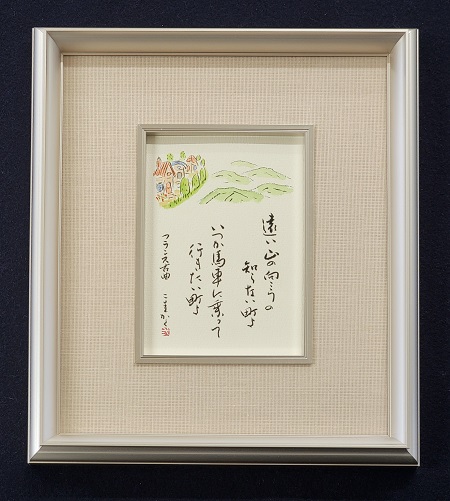 遠い山の向こうの
知らない町よ
いつか馬車に乗って
行きたい町よ
フランス古曲 こまがく